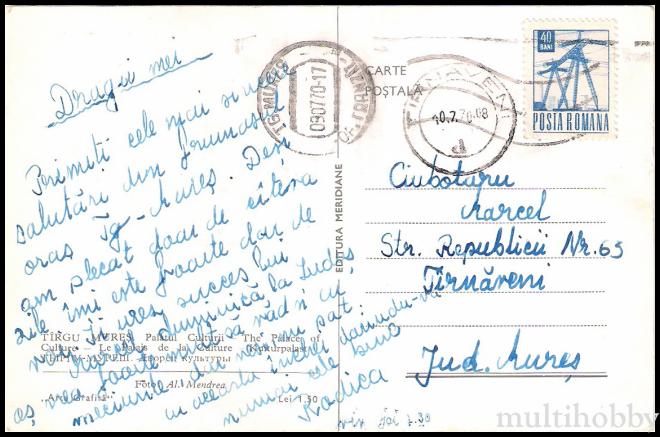 Dragii mei
Primiți cele mai sincere
salutări din frumosul
oraș Tg-Mureș. Deși
am plecat doar de cîteva
zile îmi este foarte dor de
voi. Îi urez succes lui
duminică la Luduș
aș vrea foarte mult să văd și eu
meciurile dar
cu această
numai cele bune
Rodica
vin joi 1.30
TÎRGU MUREȘ Palatul Culturii — The Palace of
Culture — Le Palais de la Culture — Kulturpalast
Foto: Al. Mendrea
"Arta Grafică" Lei 1,50
EDITURA MERIDIANE
CARTE
POȘTALĂ
TG-MUREȘ
09.07.70-17
TIRNAVENI
10.7.70.08
d
40
BANI
POSTA ROMANA
Ciubotaru
Marcel
Str. Republicii Nr. 65
Tîrnăveni
Jud. Mureș
multihobby